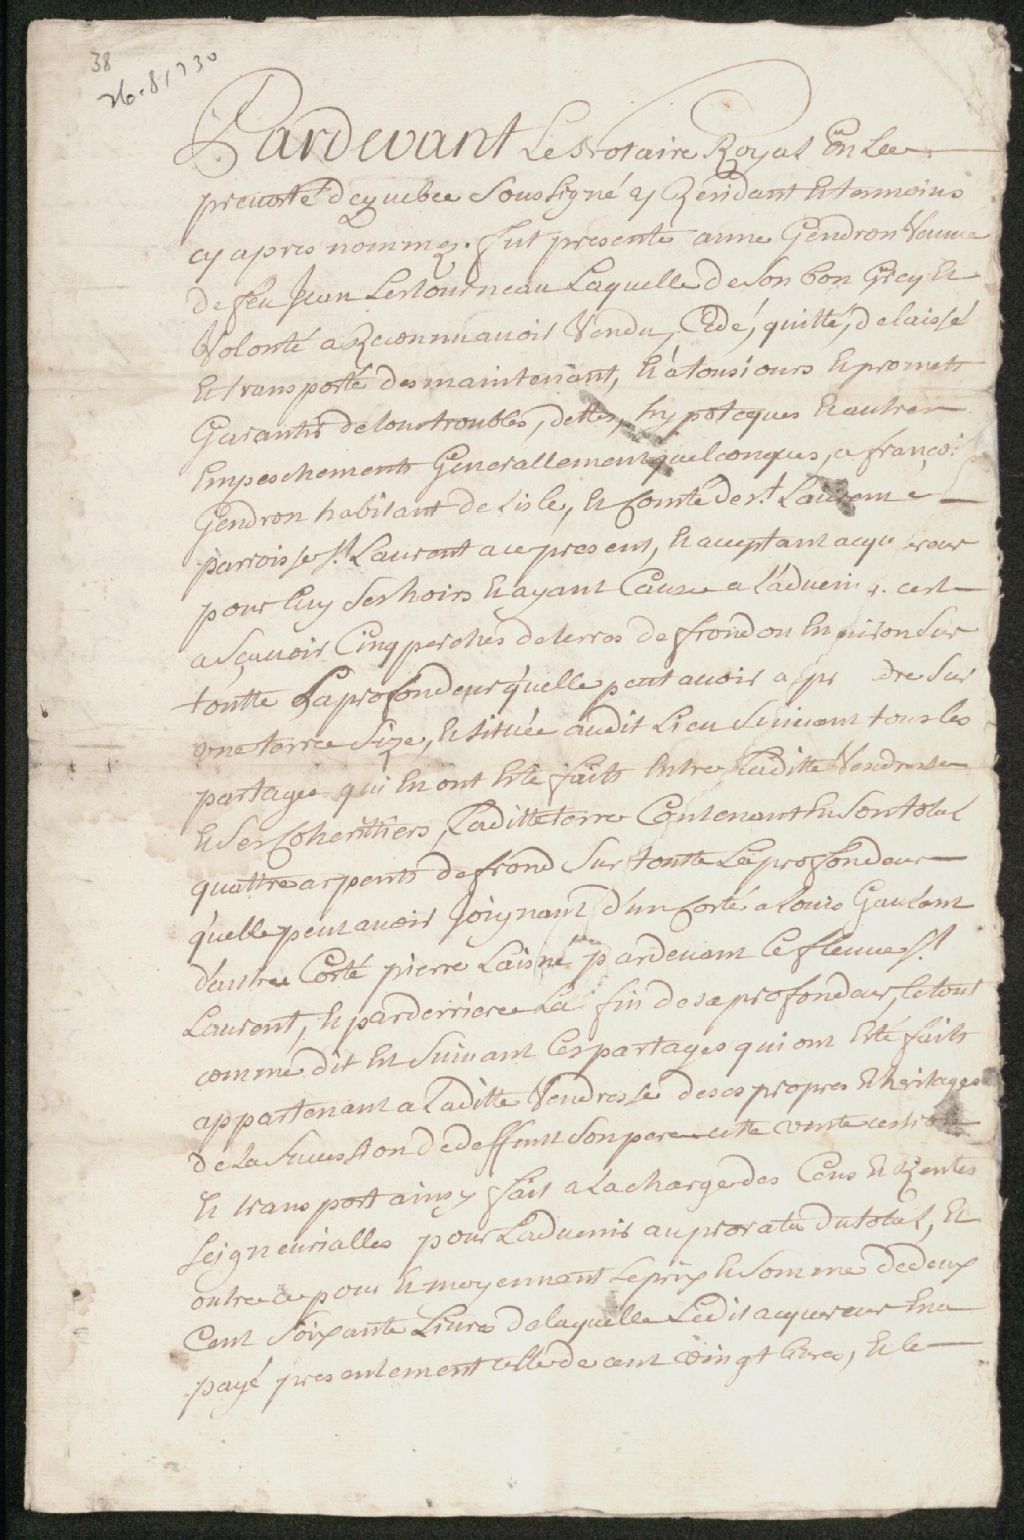 38
26-8 1730
Pardevant Le Notaire Royal En La
prevosté de quebec Soussigné y Residant Et temoins
cy apres nommez. fut presente anne Gendron Veuve
de feu Jean Lestourneau Laquelle de Son bon Grey Et
Volonté a Reconnu avoir Vendu, Cedé, quitté, delaissé
Et transporté des maintenant, Et a tousiours Et promets
Garantir de tous troubles, dettes, hypoteques Et autres
Empeschements Generallement quelconques, a françois
Gendron habitant de Lisle, Et Comté de St. Laurent
parroisse St. Laurent a ce present, Et acceptant acquereur
pour Luy Ses hoirs Et ayant Cause a L'advenir. cest
a Sçavoir Cinq perches de terres de frond ou Environ Sur
toutte La profondeur qu'elle peut avoir a prendre Sur
une terre Size, Et située audit Lieu Suivant tous les
partages qui En ont Esté faits Entre Laditte Vendresse
Et Ses Coheritiers, Laditte terre Contenant En Son total
quattre arpents de frond Sur toutte La profondeur
qu'elle peut avoir Joignant d'un Costé a Louis Gaulent
d'autre Costé pierre Laisné pardevant Le fleuve St.
Laurent, Et par derriere La fin de sa profondeur, Le tout
comme dit Est Suivant Les partages qui ont Esté faits
appartenant a Laditte Vendresse de ses propres Et heritages
de La Succession de deffunt Son pere cette vente cession
Et transport ainsy fait a La charge des Cens Et Rentes
Seigneurialles pour L'advenir au prorata du total, Et
outre ce pour Et moyennant Le prix Et Somme de deux
Cent Soixante Livres de laquelle Ledit acquereur En a
payé presentement celle de cent vingt livres, Et le